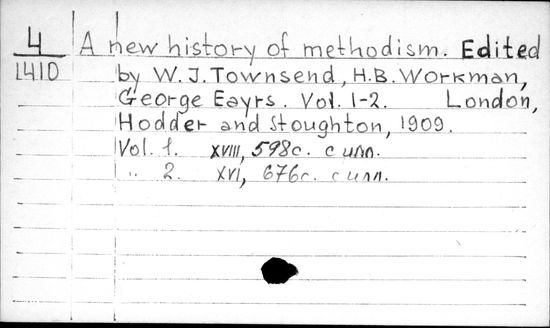 4 A new history of methodism. Edited
1410 by W. J. Townsend, H.B. Workman,
George Eayrs. Vol. 1-2. London,
Hodder and Stoughton, 1909.
Vol. 1. XVIII, 598с. с илл.
" 2. XVI, 676с. с илл.